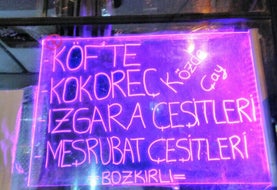 -KÖFTE
-KOKOREÇ
Közde
Çay
-IZGARA ÇEŞİTLERİ
MEŞRUBAT ÇEŞİTLERİ
BOZKIRLI=